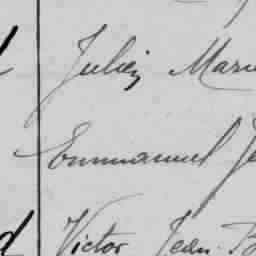 Julien Mari
Emmanuel Je
d Victor Jean B